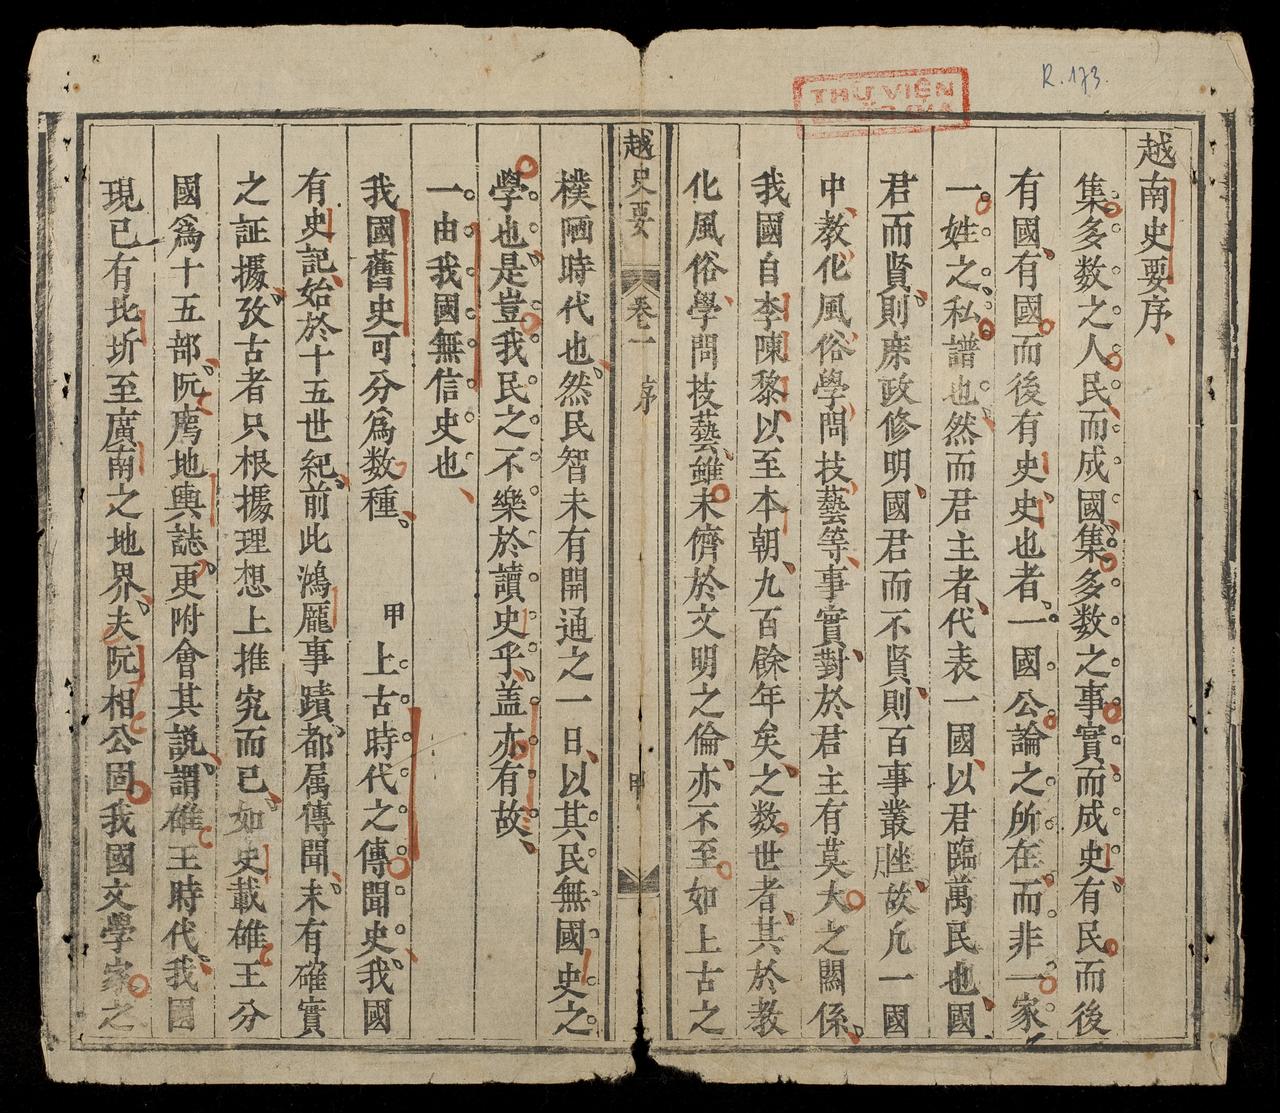 R.173.
THƯ VIỆN
越南史要序、
集多数之人民、而成國、集多数之事實、而成史、有民而後
有國、有國而後有史、史也者、一國公論之所在、而非一家
一姓之私譜也、然而君主者、代表一國、以君臨萬民也、國
君而賢、則庶政修明、國君而不賢、則百事叢脞、故凢一國
中、教化風俗、學問技藝等、事實、對於君主有莫大之關係、
我國自李陳黎、以至本朝、九百餘年矣、之数世者、其於教
化風俗、學問技藝、雖未儕於文明之倫、亦不至如上古之
越史要 卷一 序 甲
樸陋時代也、然民智未有開通之一日、以其民無國史之
學也、是豈我民之不樂於讀史乎、盖亦有故、
一。由我國無信史也、
我國舊史可分爲数種、 甲 上古時代之傳聞史、我國
有史記、始於十五世紀、前此鴻厖事蹟、都属傳聞、未有確實
之証據、攷古者只根據理想上推究而已、如史載雄王分
國爲十五部、阮廌地輿誌、更附會其説、謂雄王時代、我國
現已有北圻至廣南之地界、夫阮相公固我國文學家之